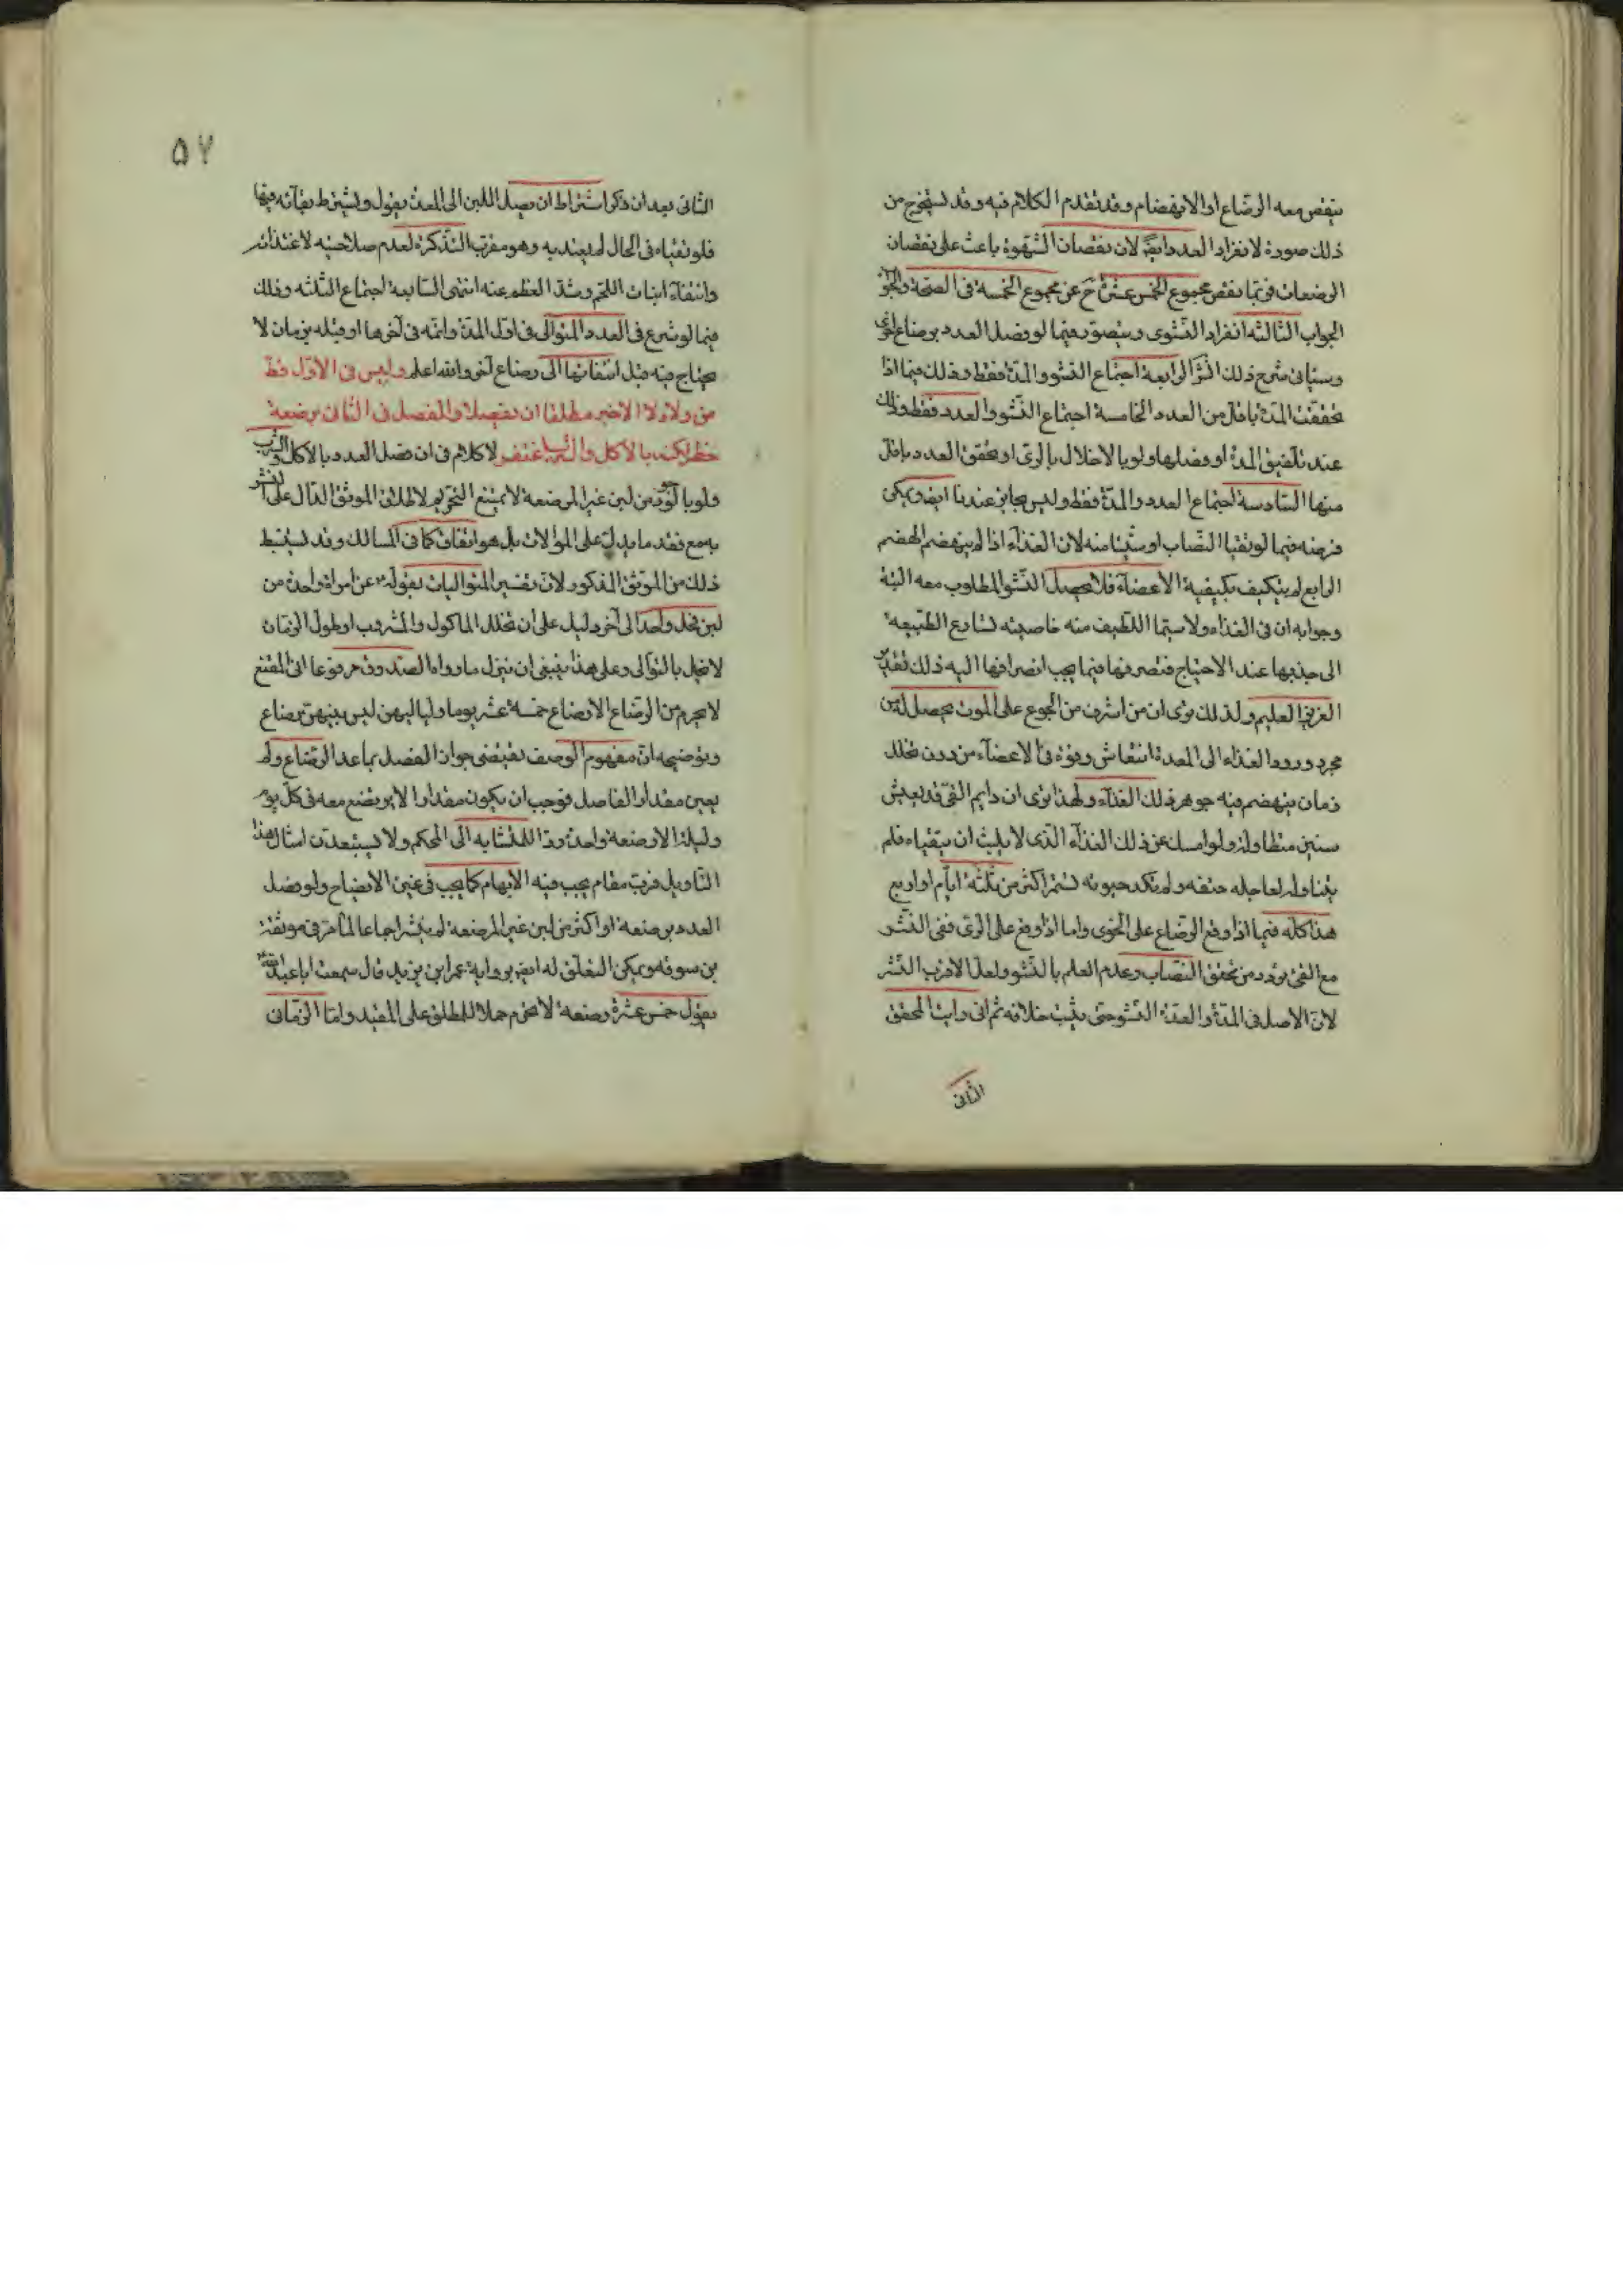 ينقص معه الرضاع او الانهضام وقد تقدم الكلام فيه وقد يستخرج من
ذلك صورة لانفراد العدد ايضا لان نقصان الشهوة باعث على نقصان
الرضعات فربما نقص مجموع الخمس عشرة ح عن مجموع الخمسة فى الصحة والجواب
الجواب الثالثه انفراد النشوى ويتصور فيما لو فصل العدد برضاع اخرى
وسياتى شرح ذلك الرابعة اجتماع النشو والمدة فقط وذلك فيما اذا
تحققت المدة باقل من العدد الخامسة اجتماع النشو والعدد فقط وذلك
عند تلفيق المدة او فصلها ولو بالاخلال بالرى او تحقق العدد باقل
منها السادسة اجتماع العدد والمدة فقط وليس بجايز عندنا ايضا ويمكن
فرضه فيما لو تقيا النصاب او شيئا منه لان الغذاء اذا لم ينهضم الهضم
الرابع لم يتكيف بكيفية الاعضاء فلا يحصل النشو المطلوب معه البتة
وجوابه ان فى الغذاء ولا سيما اللطيف منه خاصيته تسارع الطبيعه
الى جذبها عند الاحتياج فتصرفها فيما يجب انصرافها اليه ذلك تقدير
العزيز العليم ولذلك نرى ان من اشرف من الجوع على الموت يحصل له من
مجرد ورود الغذاء الى المعدة انتعاش وقوة فى الاعضاء من دون تخلل
زمان ينهضم فيه جوهر ذلك الغذاء ولهذا نرى ان دايم القئ قد يعيش
سنين متطاولة ولو امسك عن ذلك الغذاء الذى لا يلبث ان يتقياه فلم
يتناوله لعاجله حتفه ولم تكد حيوته تستمر اكثر من ثلثة ايام او اربع
هذا كله فيما اذا وقع الرضاع على الخوى واما اذا وقع على الرى ففى النشو
مع القئ تردد من تحقق النصاب وعدم العلم بالنشو ولعل الاقرب النشر
لان الاصل فى المدة والعدة النشو حتى يثبت خلافه ثم انى رايت المحقق
الثانى
۵۷
الثانى بعد ان ذكر اشتراط ان يصل اللبن الى المعدة يقول ويشترط بقائه فيها
فلو تقياه فى الحال لم يعتد به وهو مقرب التذكرة لعدم صلاحيته لاغتذائه
وانتفاء انبات اللحم وشد العظم عنه انتهى السابعة اجتماع الثلثه وذلك
فيما لو شرع فى العدد المتوالى فى اول المدة واتمه فى آخرها او قبله بزمان لا
يحتاج فيه قبل انتفائها الى رضاع آخر والله اعلم وليس فى الاول قط
من ولاء لا الاخير مطلقا ان تفصلا والفصل فى الثان برضعة
حظر لكنه بالاكل والشرب غتفر لا كلام فى ان فصل العدد بالاكل والشرب
ولو من لبن غير المرضعة لا يمنع التحريم لاطلاق الموثق الدال على النشر
به مع فقد ما يدل على الموالات بل هو اتفاق كما فى المسالك وقد يستنبط
ذلك من الموثق المذكور لان تفسير المتواليات بقوله من امراة واحدة من
لبن فحل واحد الى آخره دليل على ان تخلل الماكول والمشروب او طول الزمان
لا يخل بالتوالى وعلى هذا ينبغى ان ينزل ما رواه الصدوق مرفوعا فى المقنع
لا يحرم من الرضاع الا رضاع خمسة عشر يوما ولياليهن ليس بينهن رضاع
وتوضيحه ان مفهوم الوصف يقتضى جواز الفصل بما عدا الرضاع ولم
يعين مقدار الفاصل فوجب ان يكون مقدارا لا يرتضع معه فى كل يوم
وليلة الا رضعة واحدة ردا للمتشابه الى المحكم ولا تستبعدن امثال هذا
التاويل فرب مقام يجب فيه الابهام كما يجب فى غيره الايضاح ولو فصل
العدد برضعة او اكثر من لبن غير المرضعة لم ينشر اجماعا لما مر فى موثقة
بن سوقه ويمكن التعلق له ايضا برواية عمر ابن يزيد قال سمعت ابا عبد الله
يقول خمس عشرة رضعة لا تحرم حملا للمطلق على المقيد واما الزمانى